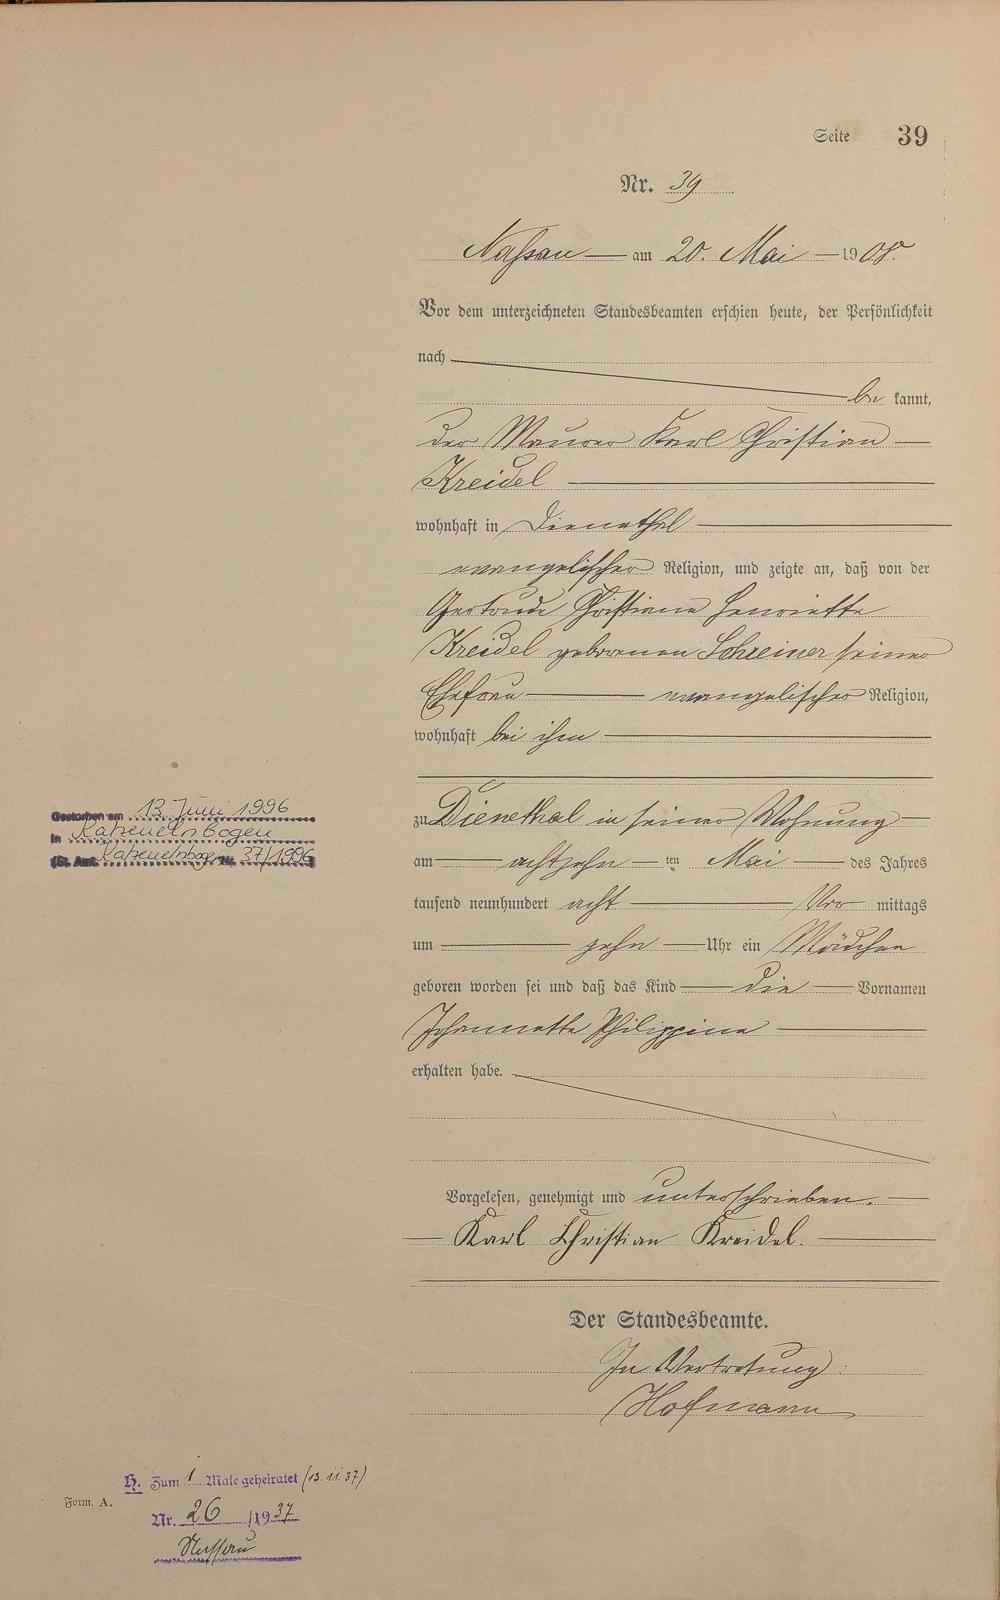 Seite 39
Nr. 39
Naßau — am 20. Mai — 1908.
Vor dem unterzeichneten Standesbeamten erschien heute, der Persönlichkeit
nach
be kannt,
der Maurer Karl Christian —
Kreidel —
wohnhaft in Dienethal —
evangelischer Religion, und zeigte an, daß von der
Gertrude Christiane Henriette
Kreidel geborenen Schreiner seiner
Ehefrau — evangelischer Religion,
wohnhaft bei ihm —
zu Dienethal in seiner Wohnung —
am — achtzehn — ten Mai — des Jahres
tausend neunhundert acht — Vor mittags
um — zehn — Uhr ein Mädchen
geboren worden sei und daß das Kind — die — Vornamen
Johannette Philippine —
erhalten habe.
Vorgelesen, genehmigt und unterschrieben. —
— Karl Christian Kreidel. —
Der Standesbeamte.
In Vertretung:
Hofmann
Gestorben am 13. Juni 1996
in Katzenelnbogen
(St. Amt Katzenelnbogen Nr. 37/1996
H. Zum 1 Male geheiratet (13.11.37)
Form. A.
Nr. 26 /1937
Nassau